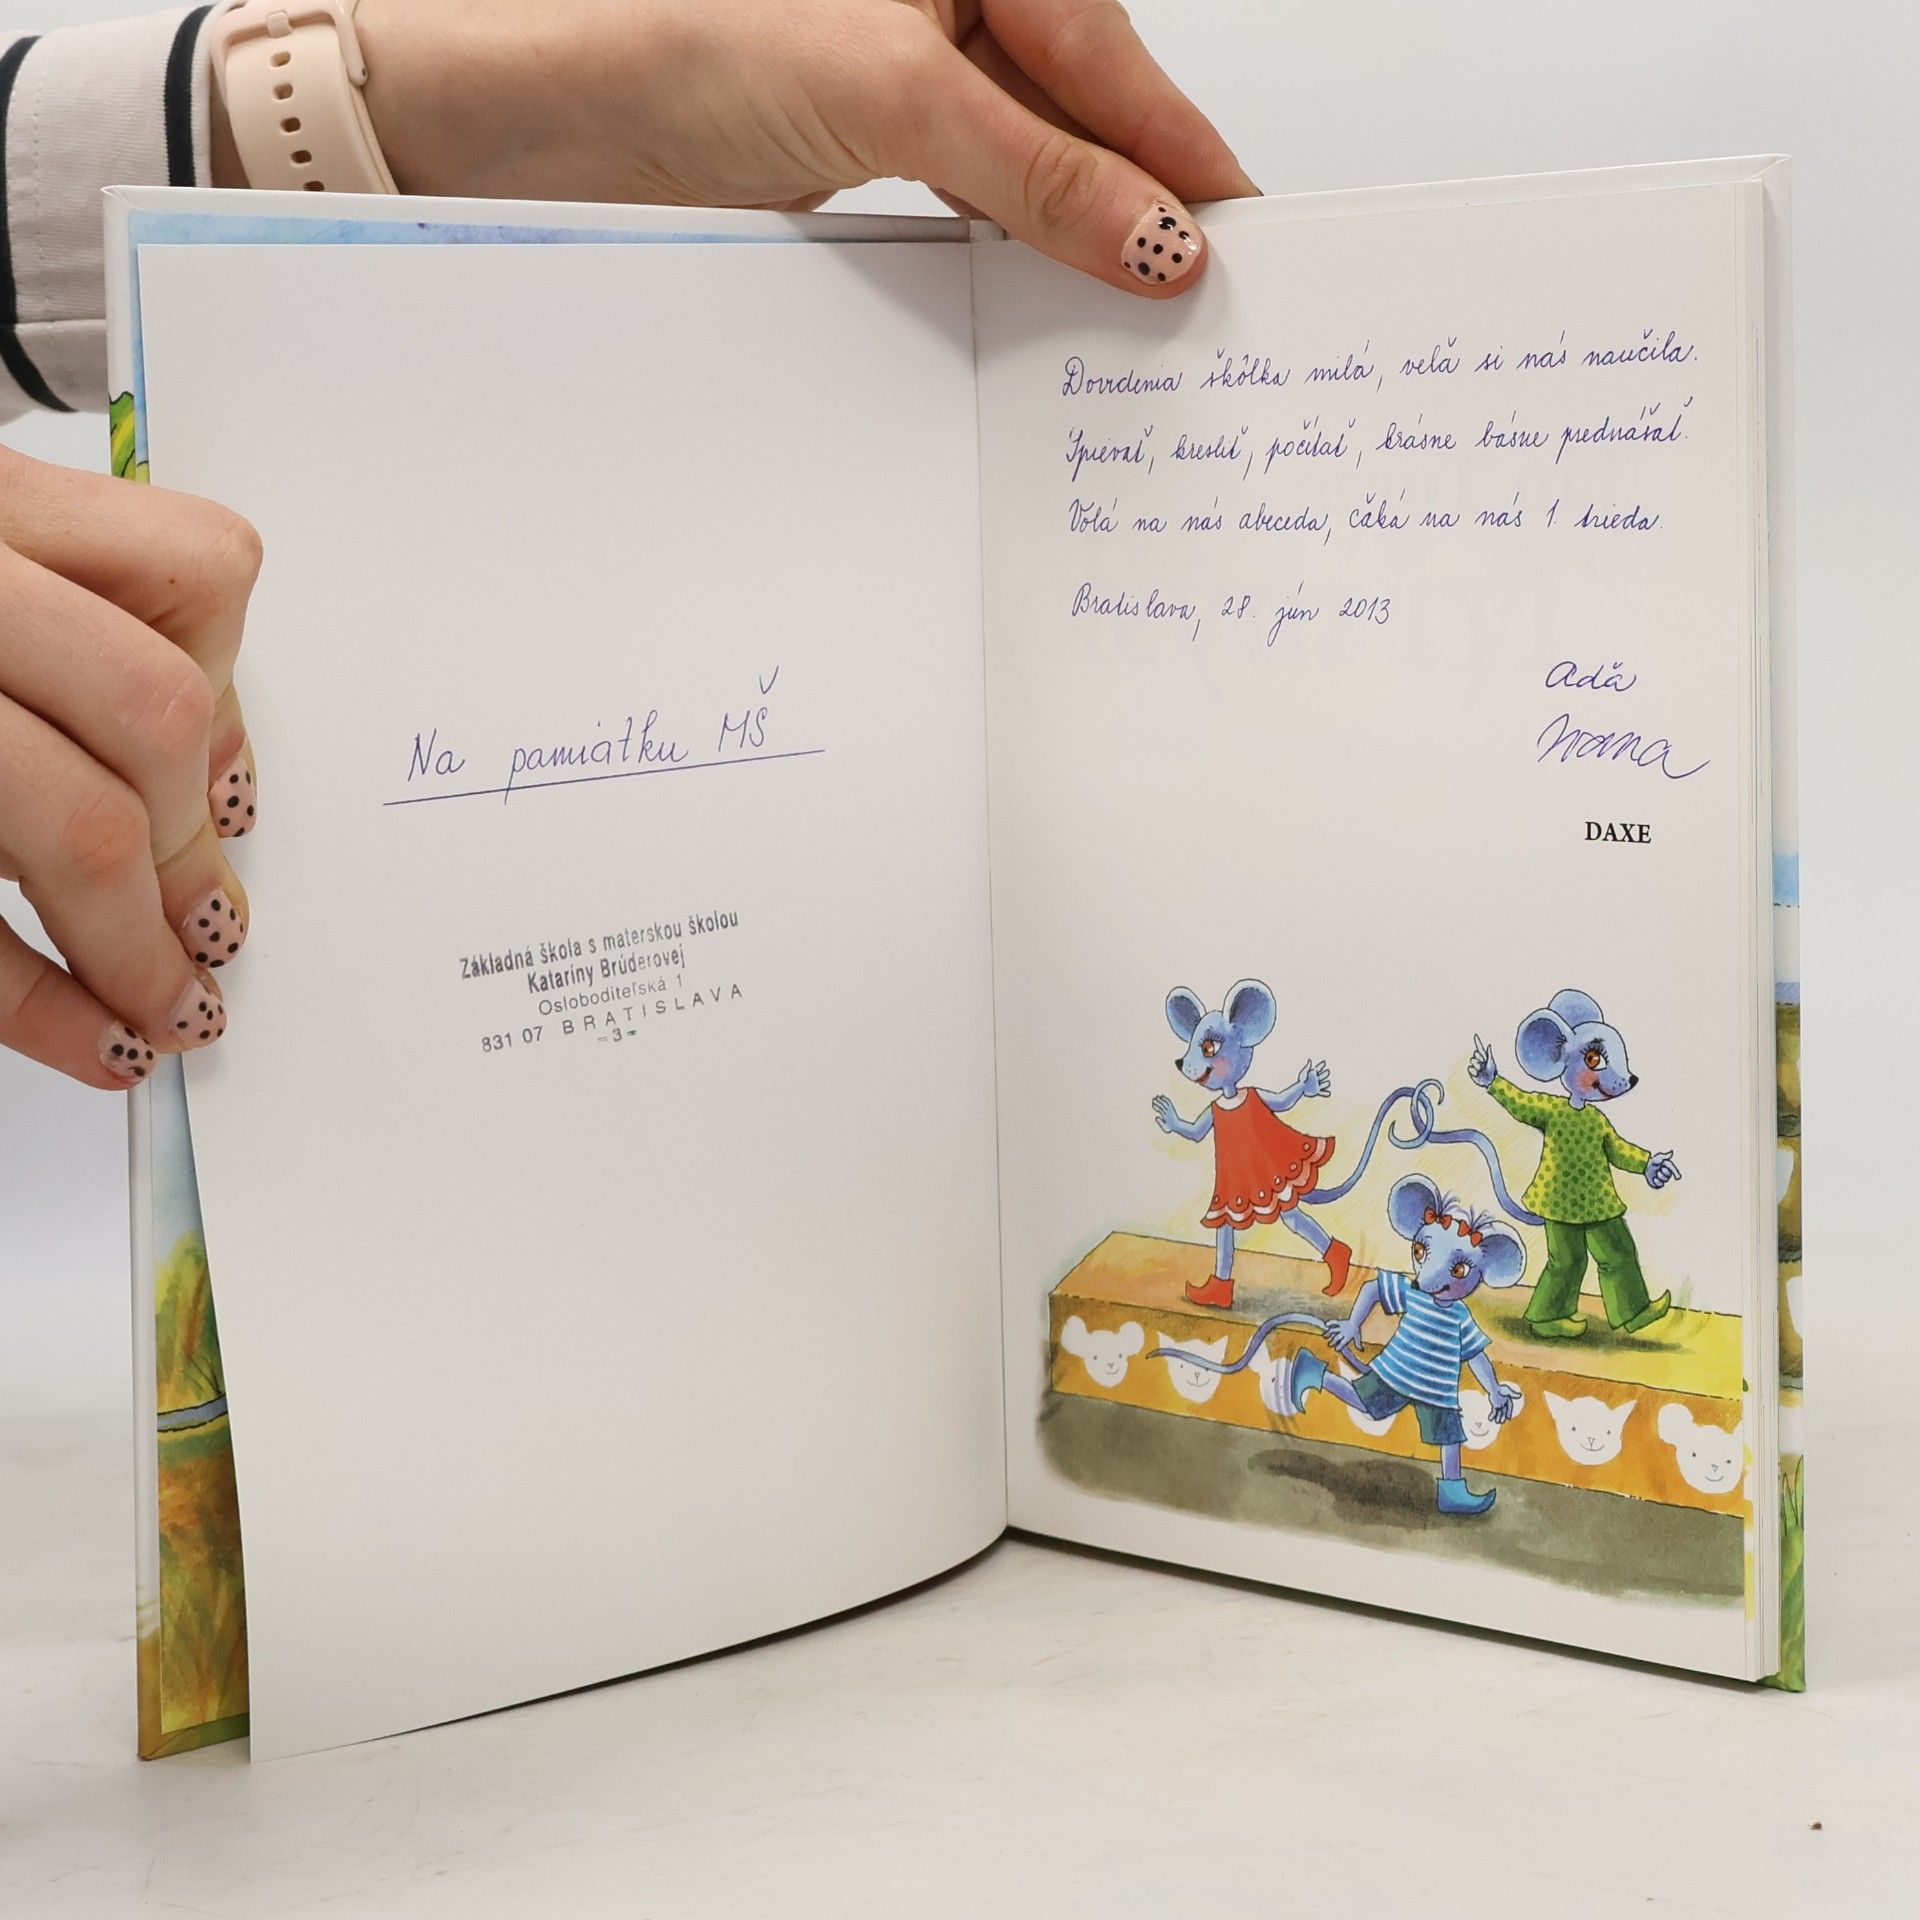 Na pamiatku MŠ
Základná škola s materskou školou
Kataríny Brúderovej
Osloboditeľská 1
831 07 BRATISLAVA
-3-
Dovidenia škôlka milá, velă si nás naučila.
Spievať, kresliť, počítať, krásne básne prednášať.
Volá na nás abeceda, čăká na nás 1. trieda.
Bratislava, 28. jún 2013
Adă
Ivana
DAXE